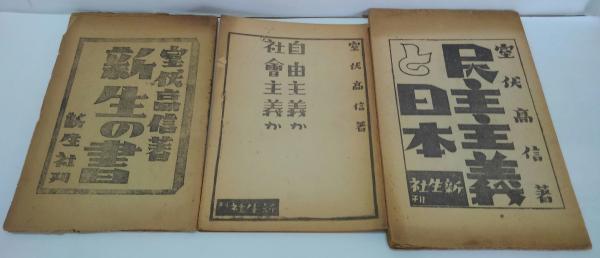 室伏高信著
新生の書
新生社刊
室伏高信著
自由主義か
社會主義か
新生社刊
室伏高信著
民主主義
と日本
新生社刊